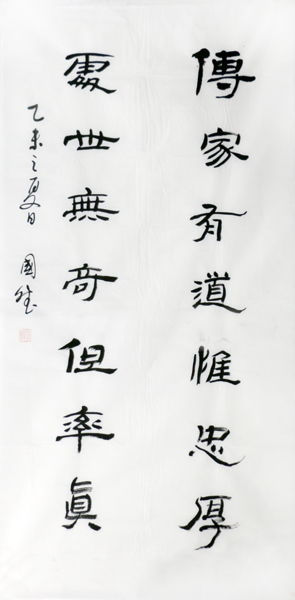 傳家有道惟忠厚
處世無奇但率真
乙未之夏日 國